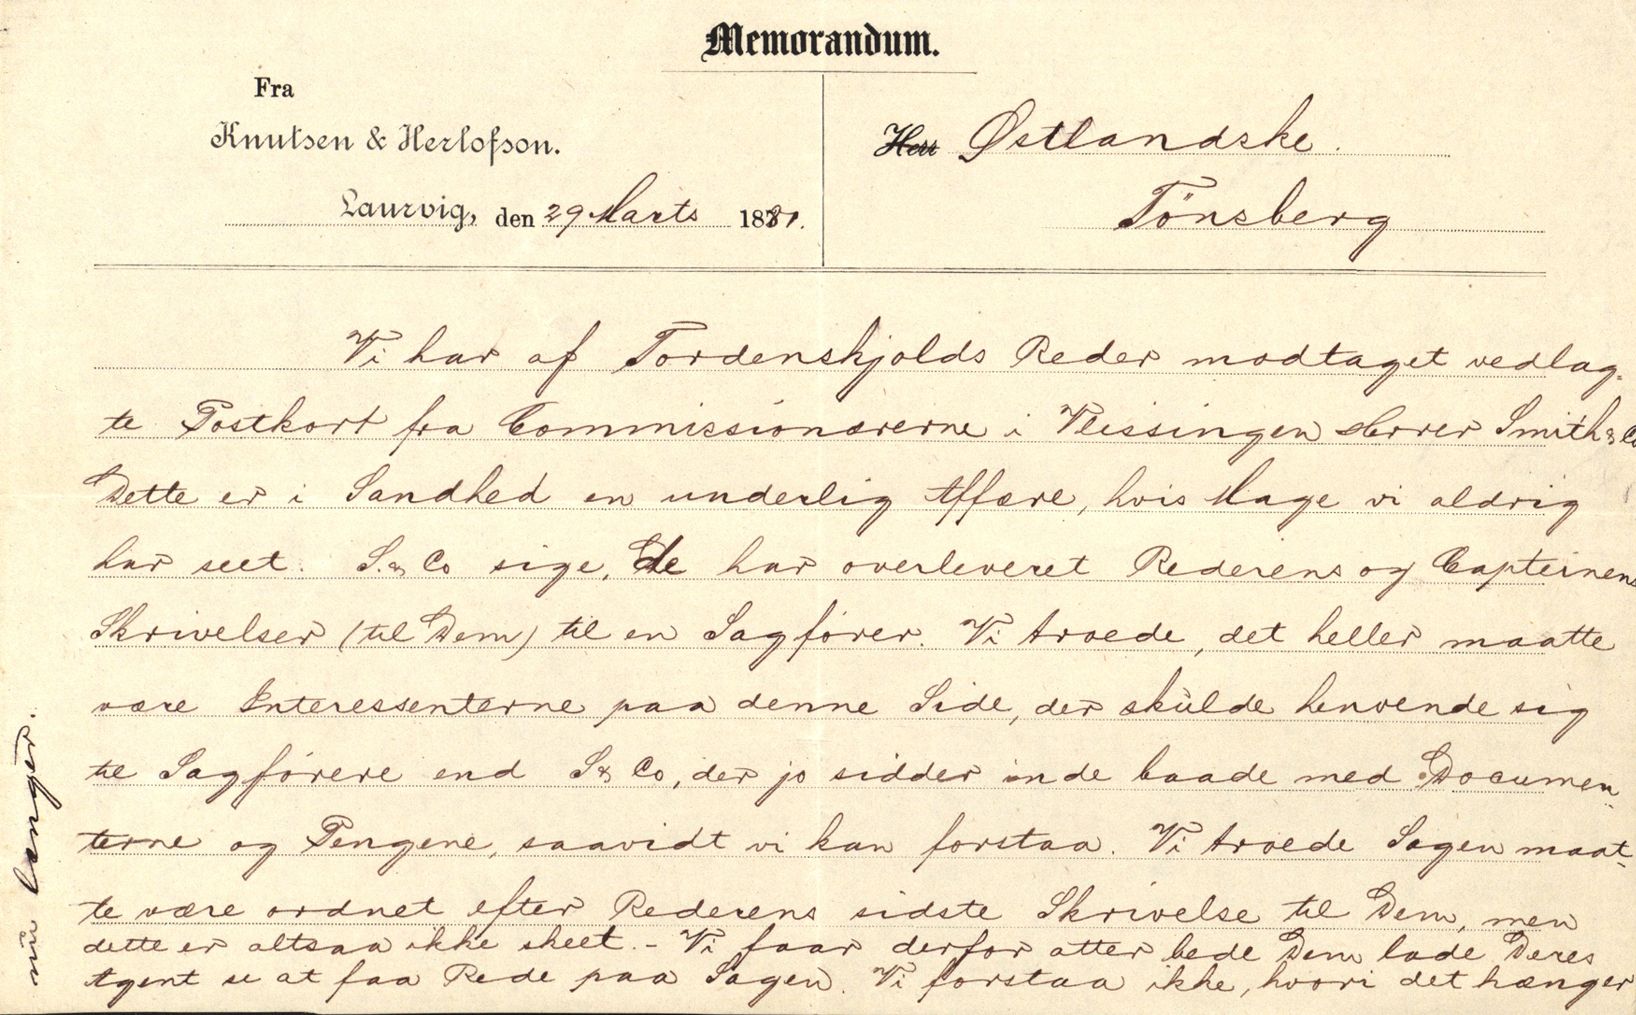 Memorandum.
Fra
Knutsen & Herlofson.
Laurvig, den 29 Marts 1881.
Herr Østlandske.
Tönsberg
Vi har af Tordenskjolds Reder modtaget vedlag-
te Postkort fra Commissionærerne i Vlissingen Herrer Smith & Co
Dette er i Sandhed en underlig Affære, hvis Mage vi aldrig
har seet. S. & Co sige, de har overleveret Rederens og Capteinens
Skrivelser (til Dem) til en Sagförer. Vi troede, det heller maatte
være Interessenterne paa denne Side, der skulde henvende sig
til Sagförere end S & Co, der jo sidder inde baade med Documen-
terne og Pengene, saavidt vi kan forstaa. Vi troede Sagen maat-
te være ordnet efter Rederens sidste Skrivelse til Dem, men
dette er altsaa ikke skeet. - Vi faar derfor atter bede Dem lade Deres
Agent se at faa Rede paa Sagen. Vi forstaa ikke, hvori det hænger
nu længer.